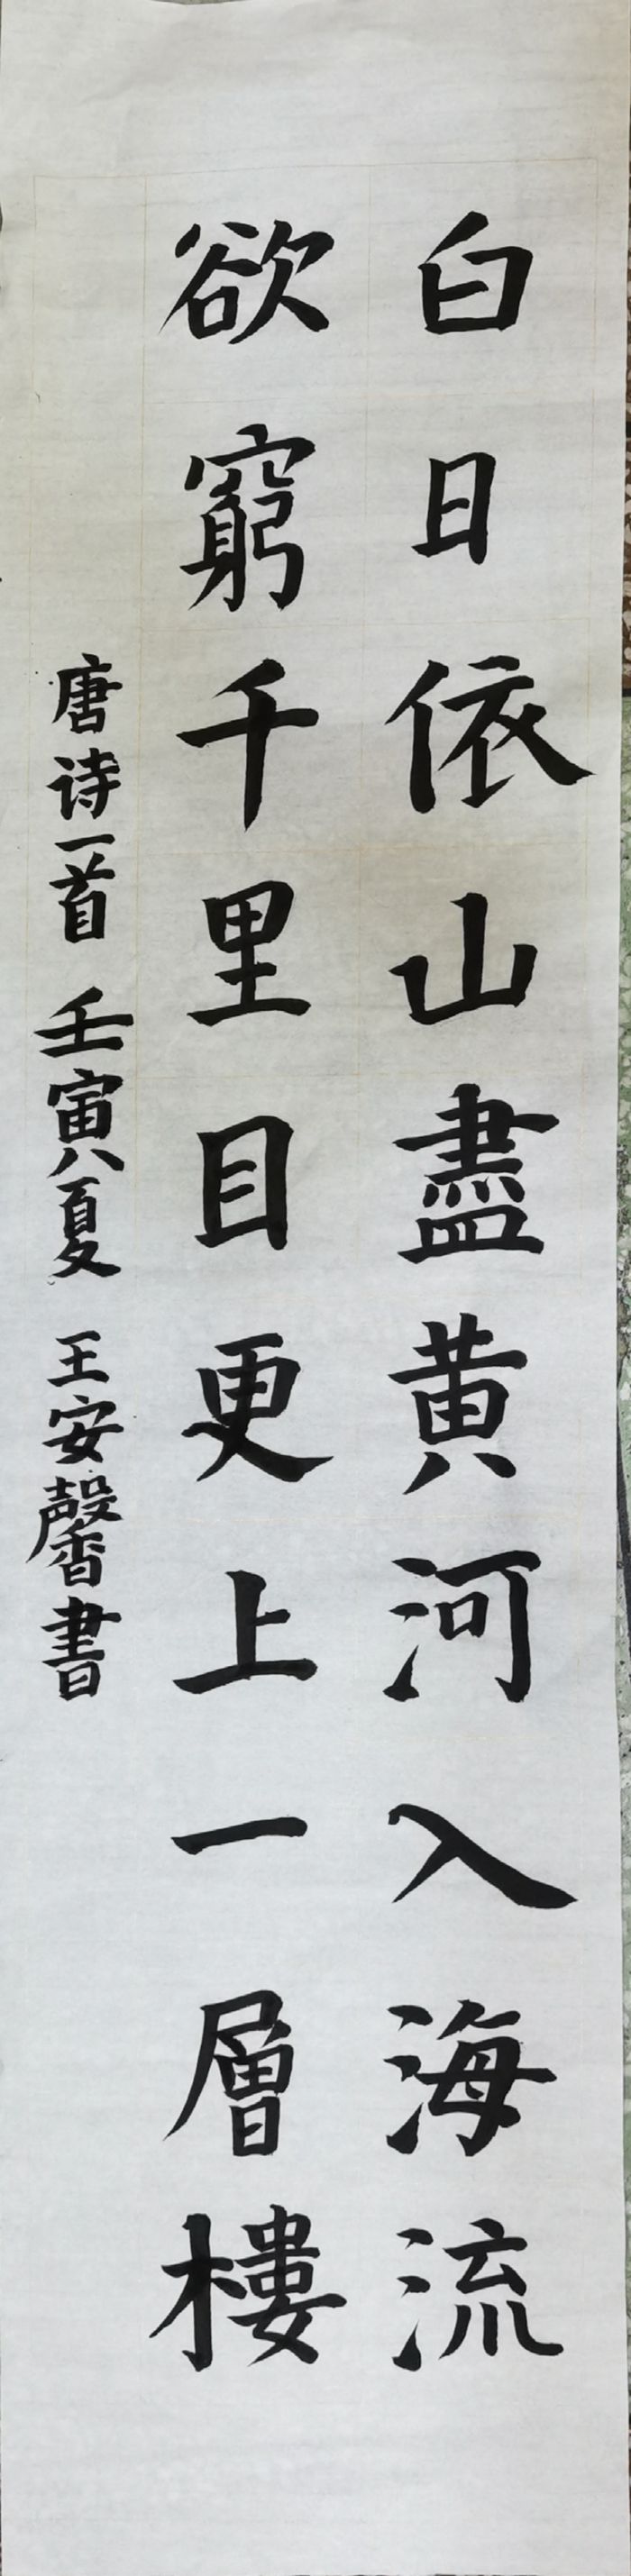 白日依山盡黄河入海流
欲窮千里目更上一層樓
唐诗一首 壬寅夏 王安馨書